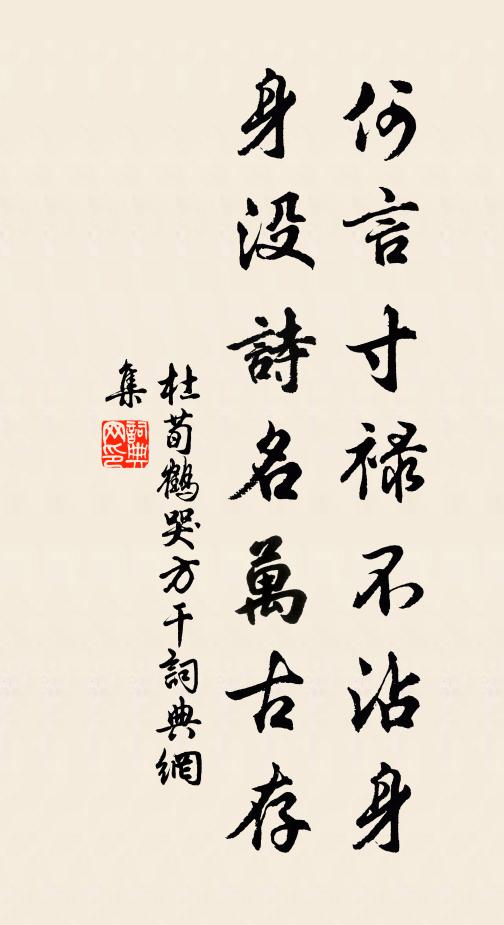 何言寸禄不沾身
身没詩名萬古存
杜荀鶴哭方干詞典網
集
詞典
网印